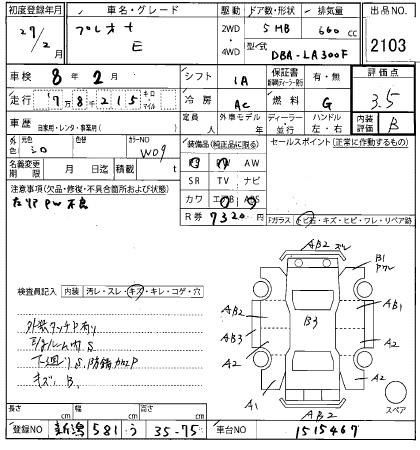 初度登録年月 車名・グレード 駆動 ドア数・形状 排気量 出品NO
27/2月 プレオ+ E 2WD・4WD 5 HB 660 cc 2103
型式 DBA-LA300F
車検 8年2月 シフト IA 保証書 有・無 評価点 3.5
走行 7万8千215 キロ マイル 冷房 AC 燃料 G 内装評価 B
車歴 自家用・レンタ・事業用( ) 定員 人 外車モデル 年 ディーラー・並行 ハンドル 左・右
外色 元色 シロ 色替 カラーNO W09 装備品(純正品に限る) セールスポイント(正常に作動するもの)
名義変更期限 月 日 積載量 t SR TV ナビ
PW AW
注意事項(欠品・修復・不具合箇所および状態) カワ エアB ABS
R券 7320 円
Fガラス トビ石・キズ・ヒビ・ワレ・リペア跡
検査員記入 内装 汚レ・スレ・キズ・キレ・コゲ・穴
外装タッチP有り
下廻りS,防錆加工P
キズ,B,
AB2
B1
AB2
AB1
AB3
B3
A2
A2
A2
A2
A1
AB2
スペア
長さ cm 幅 cm 高さ cm
登録NO 新潟 581 う 35-75 車台NO 1515467